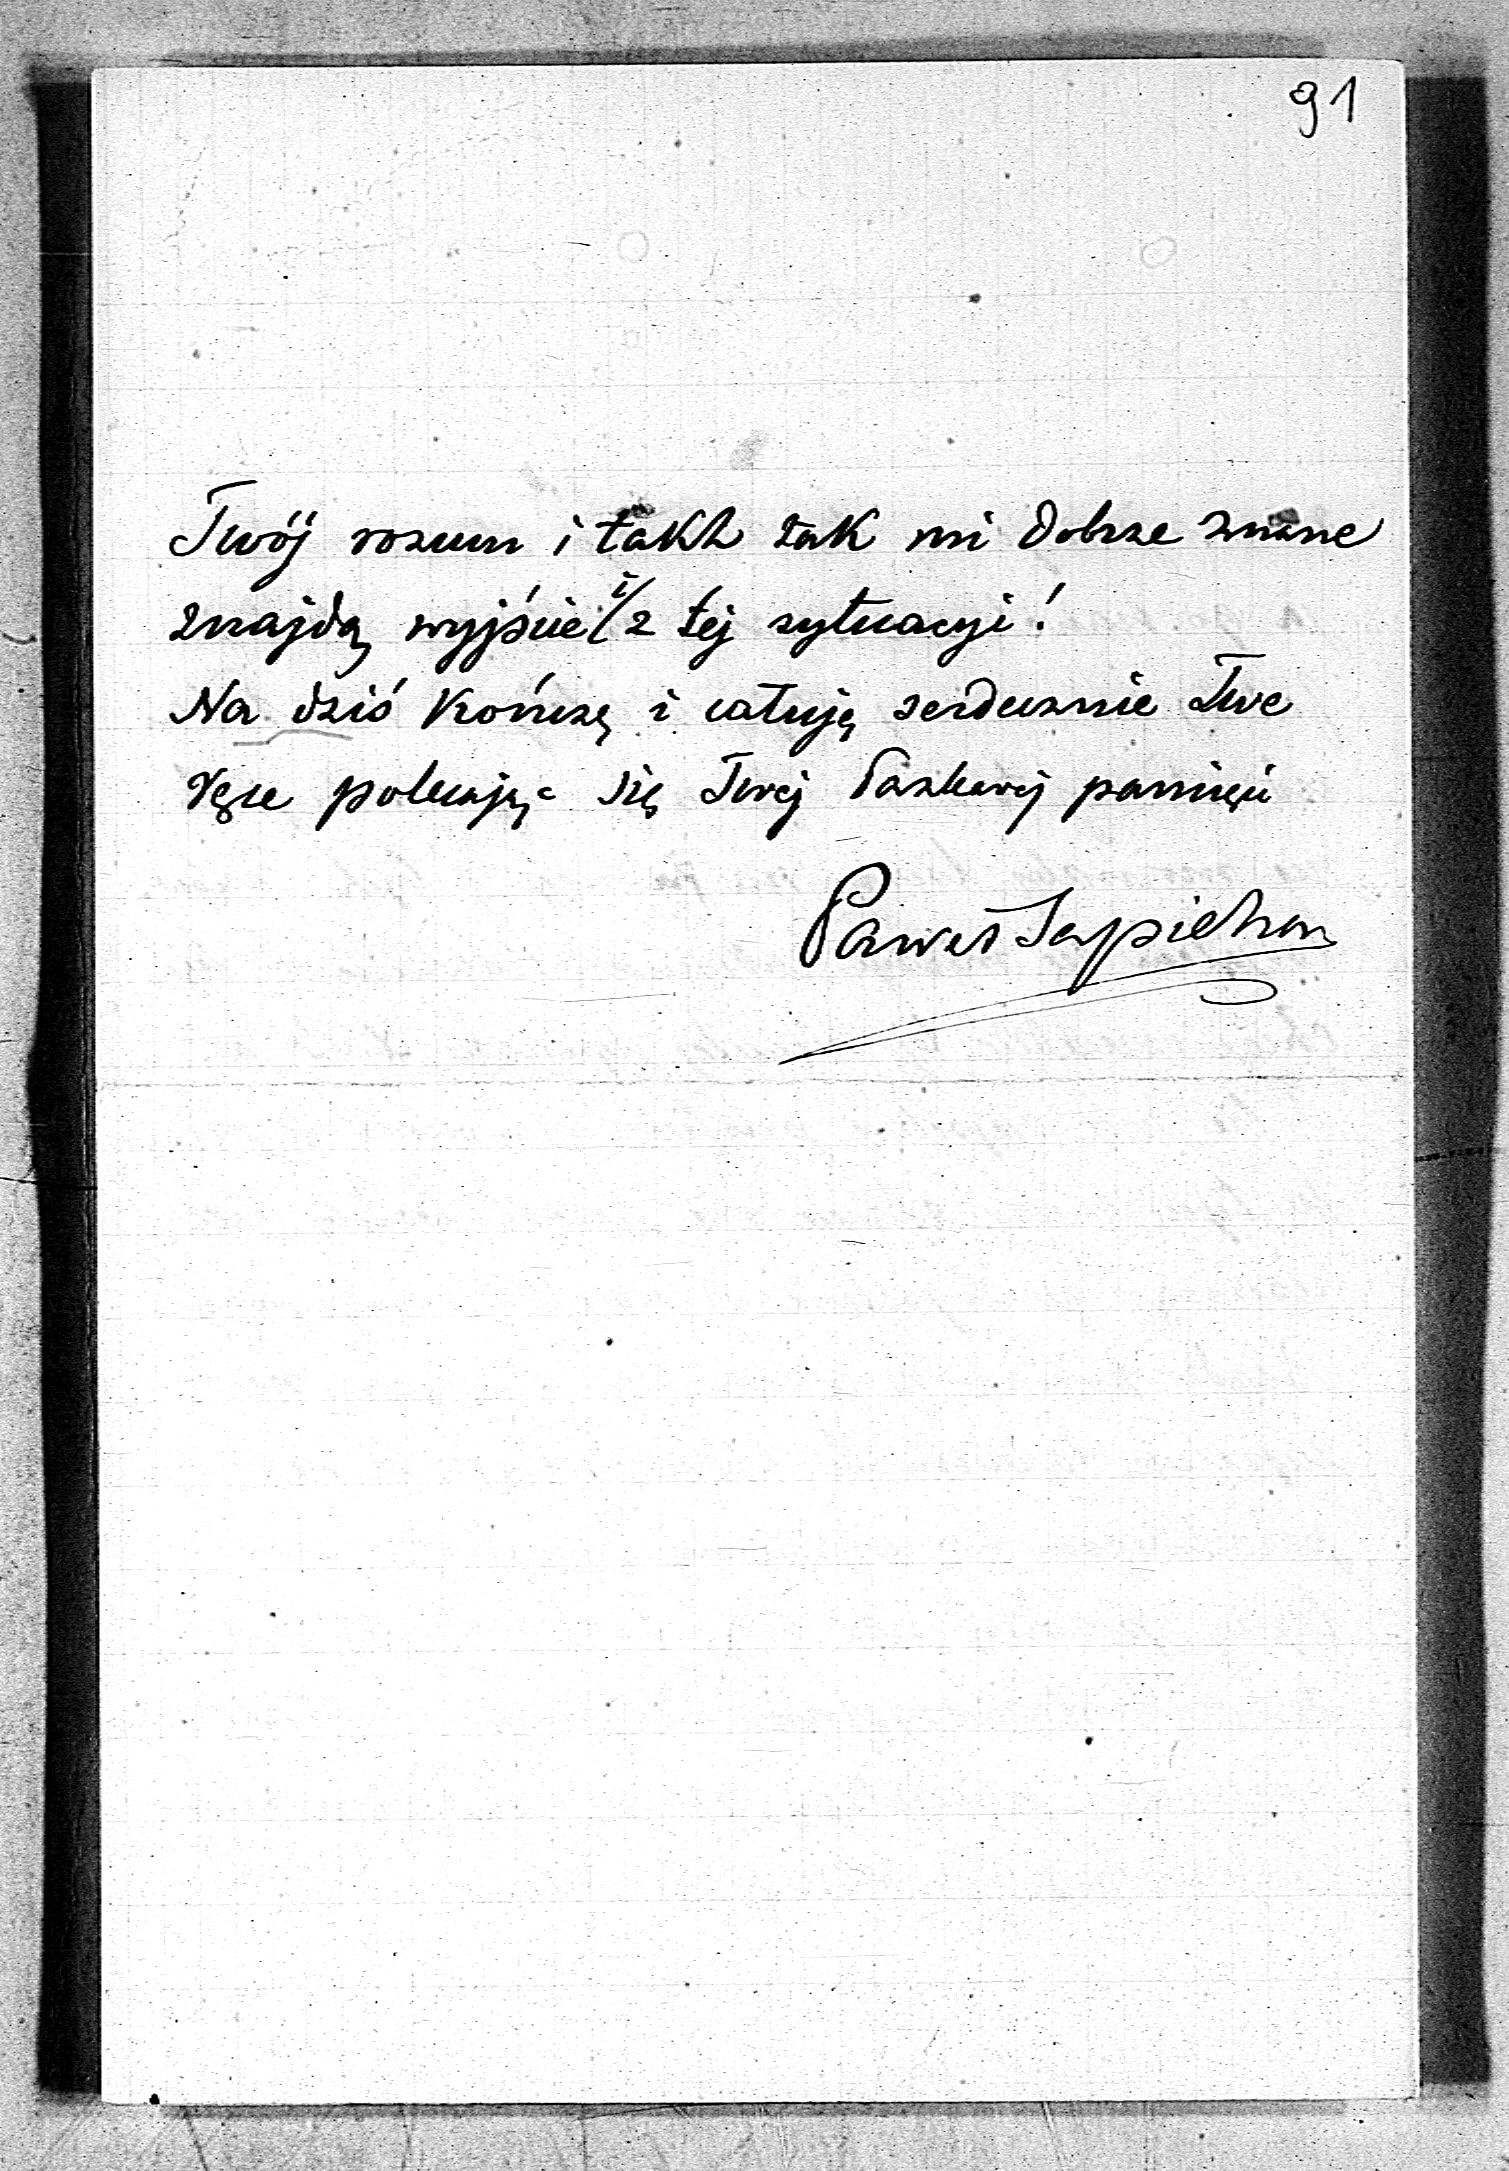 91
Twój rozum i takt tak mi dobrze znane
znajdą wyjście i z tej sytuacyi!
Na dziś kończę i całuję serdecznie Twe
ręce polecając się Twej łaskawej pamięci
Paweł Sapieha